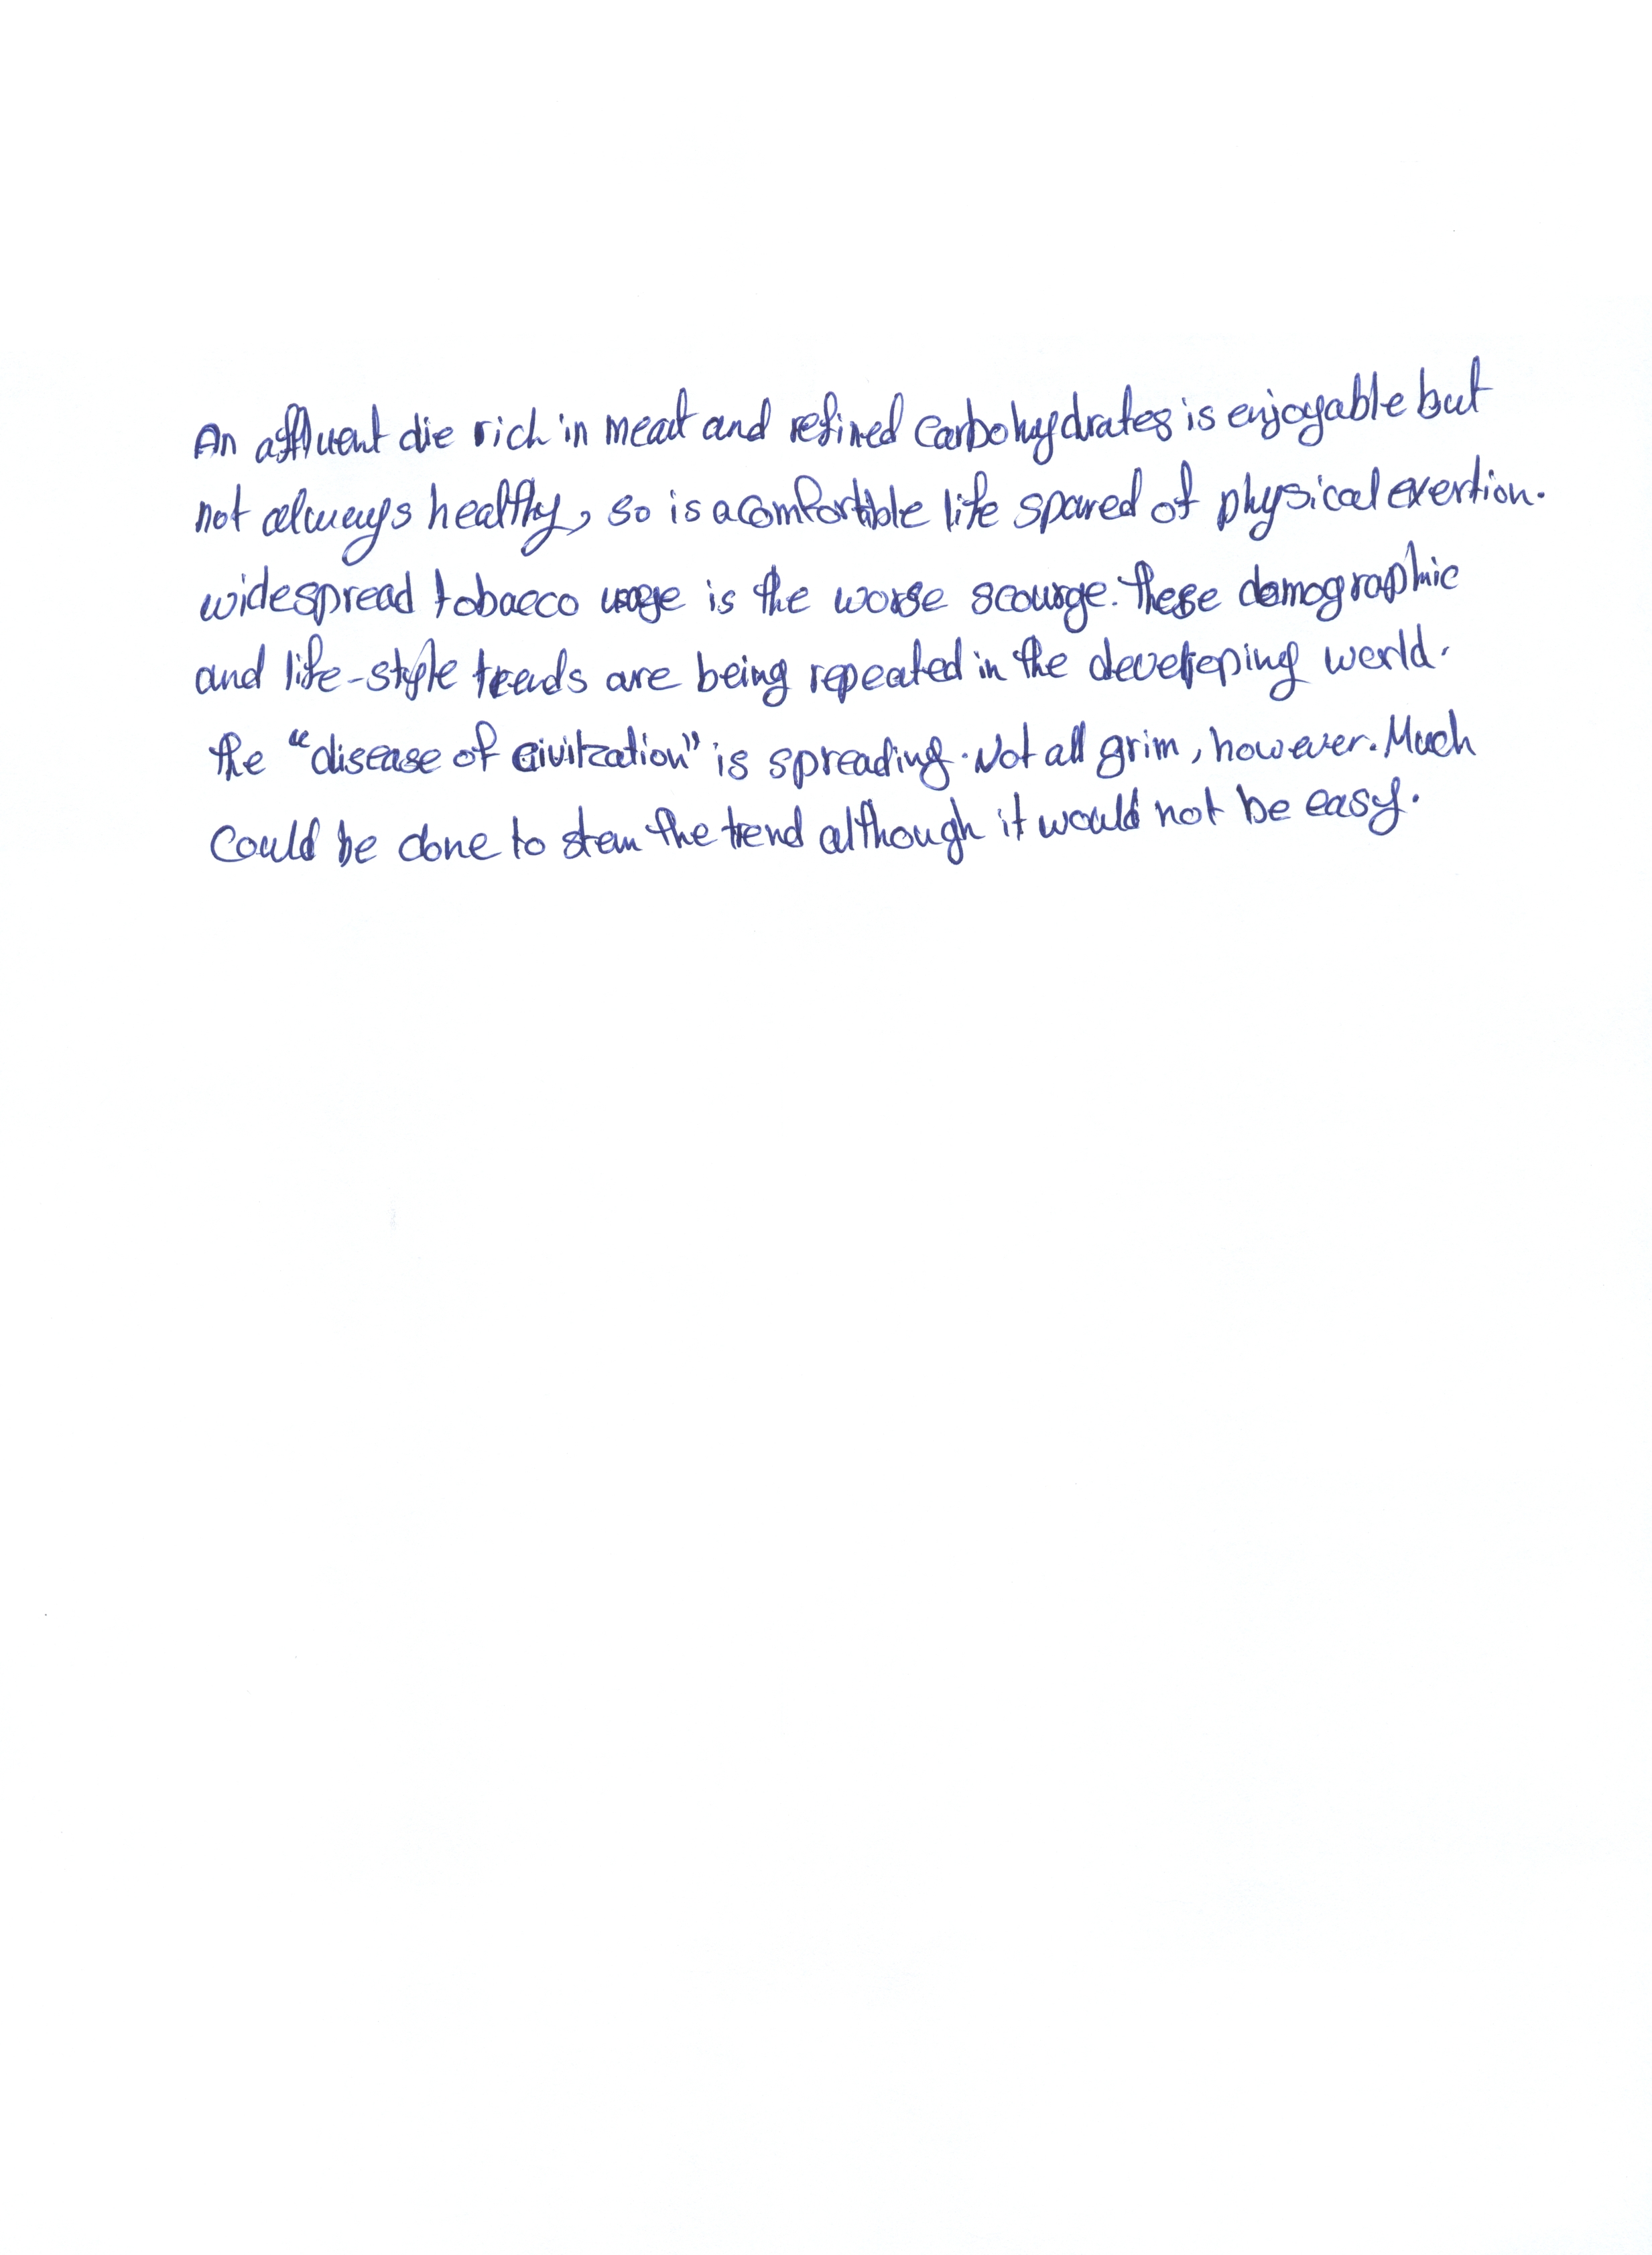 An affluent die rich in meat and refined carbohydrates is enjoyable but
not always healthy, so is a comfortible life spared of physical exertion.
widespread tobacco usage is the worse scourge. These demographic
and life-style trends are being repeated in the developing world.
the "disease of civilzation" is spreading. Not all grim, however. Much
Could be done to stem the trend although it would not be easy.